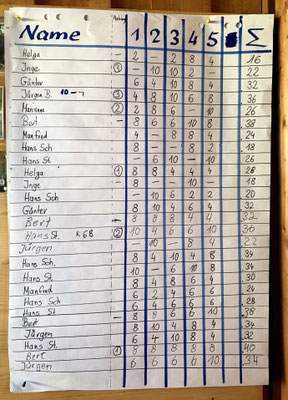 Name 1 2 3 4 5 Σ
Helga – 2 – 2 8 4 16
Inge ③ – 10 10 2 – 22
Günter 6 4 10 8 4 32
Jürgen B. 10 ③ 4 8 10 6 8 36
② 2 8 6 – 10 26
Bert – 8 6 6 10 8 38
Manfred 4 – 8 8 4 24
Hans Sch 8 – – 8 – 18
Hans St. – 6 10 – 10 26
Helga ① 8 8 4 4 4 28
Inge 8 – – 10 – 18
Hans Sch – 10 6 2 2 20
Günter 8 10 4 6 4 32
Bert – 8 8 8 4 4 32
Hans St. K 68 ② 10 4 6 6 10 36
Jürgen – 10 – 8 4 22
Hans Sch. 8 4 10 4 8 34
Hans St. 10 – 6 10 8 34
Hans St. 8 4 8 6 4 30
Manfred 6 2 4 6 6 24
Hans Sch 6 4 6 6 6 28
Hans St. 8 8 6 6 10 38
Bert – 8 10 4 8 4 34
Jürgen 6 4 10 8 4 32
Hans St. 8 8 8 8 8 40
Bert ① 6 6 6 6 10 34
Jürgen